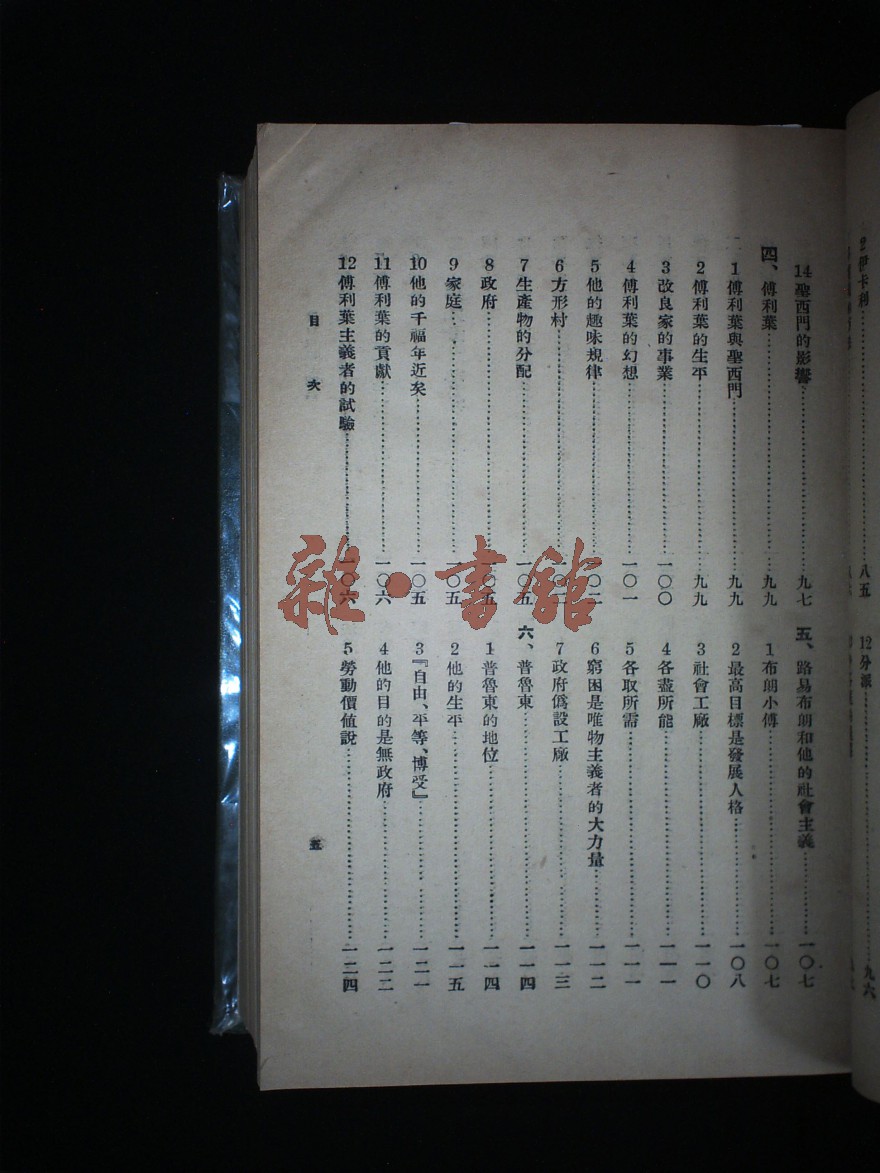 2伊卡利……八五
12分派……九六
14聖西門的影響……九七
四、傅利葉……九九
1傅利葉與聖西門……九九
2傅利葉的生平……九九
3改良家的事業……一〇〇
4傅利葉的幻想……一〇一
5他的趣味規律……一〇二
6方形村……一〇二
7生產物的分配……一〇五
8政府……一〇五
9家庭……一〇五
10他的千福年近矣……一〇五
11傅利葉的貢獻……一〇六
12傅利葉主義者的試驗……一〇六
五、路易布朗和他的社會主義……一〇七
1布朗小傅……一〇七
2最高目標是發展人格……一〇八
3社會工廠……一一〇
4各盡所能……一一一
5各取所需……一一一
6窮困是唯物主義者的大力量……一一二
7政府僞設工廠……一一三
六、普魯東……一一四
1普魯東的地位……一一四
2他的生平……一一五
3『自由、平等、博受』……一二一
4他的目的是無政府……一二二
5勞動價値說……一二四
目次
五
雜·書館